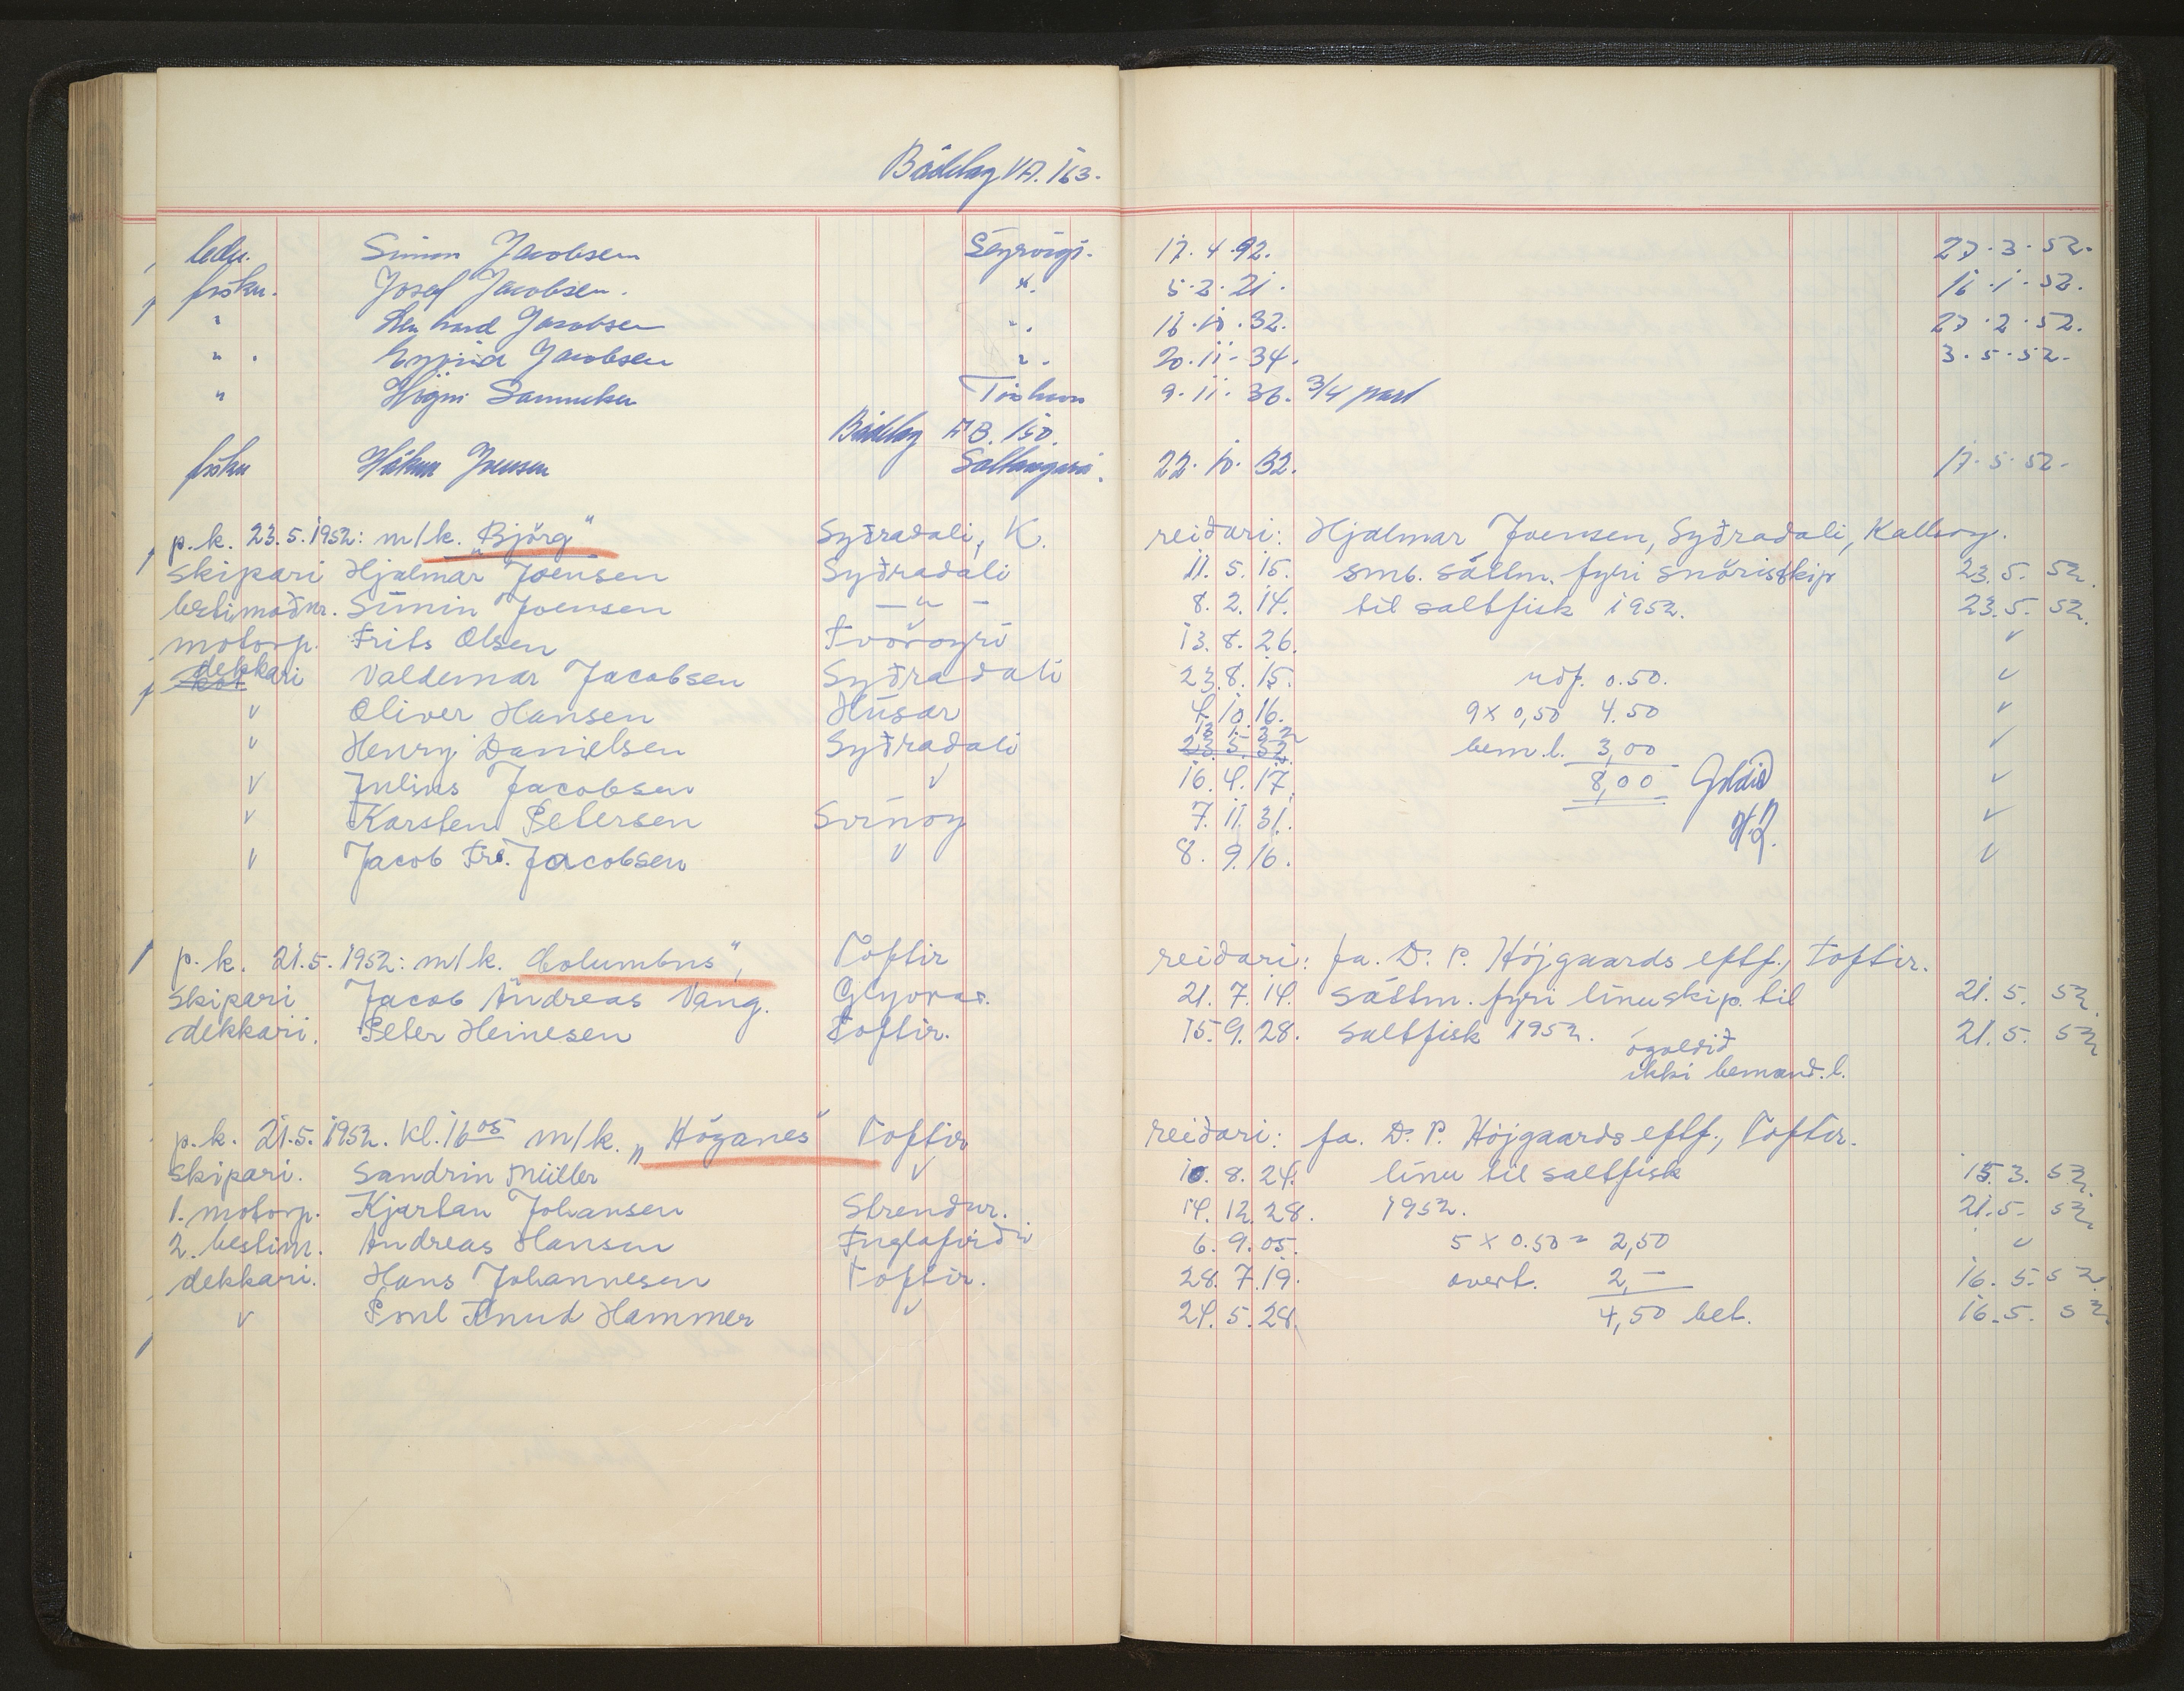 Bátslag VA. 163.
ledu. Simon Jacobsen Seyrvági. 17. 4. 92. 27. 3. 52.
frsku. Josef Jacobsen. ". 5. 2. 21. 16. 1. 52.
" Jacobsen ". 16. 10. 32. 27. 2. 52.
" . Jacobsen ". 20. 11. 34. 3. 5. 52.
" Høgni Samuelsen 9. 11. 36. 3/4 part
Bátslag 150.
Hákun Joensen Saltangará. 22. 10. 32. 17. 5. 52.
p. k. 23. 5. 1952: m/k. „Björg“ Syðradali, K. reiðari: Hjalmar Joensen, Syðradali, Kallsoy.
skipari Hjalmar Joensen Syðradali 11. 5. 15. smb. sáttm. fyri snörisskip 23. 5. 52.
bestimaður. Símin Joensen — " — 8. 2. 14. til saltfisk 1952. 23. 5. 52.
motorp. Frits Olsen Tvöroyri 13. 8. 26. "
dekkari Valdemar Jacobsen Syðradali 23. 8. 15. udf. 0.50. "
" Oliver Hansen Húsar 4. 10. 16. 9 x 0,50 4.50 "
" Henry Danielsen Syðradali 13. 1. 32 23. 5. 32. bem.l. 3,00 "
" Julius Jacobsen " 16. 4. 17. 8,00 Goldið "
" Karsten Petersen Svínoy 7. 11. 31. H.J. "
" Jacob Fr. Jacobsen " 8. 9. 16. "
p. k. 21. 5. 1952: m/k. „Columbus“, Toftir reiðari: fa. D. P. Højgaards eftf., Toftir.
skipari Jacob Andreas Vang. Glyvrar. 21. 7. 14. sáttm. fyri línuskip. til 21. 5. 52.
dekkari. Peter Heinesen Toftir. 15. 9. 28. saltfisk 1952. 21. 5. 52
ógoldið
ikki bemand.l.
p. k. 21. 5. 1952. Kl. 16 05 m/k. „Höganes“ Toftir reiðari: fa. D. P. Højgaards eftf., Toftir.
skipari. Sandrin Müller " 10. 8. 24. línu til saltfisk 15. 3. 52.
1. motorp. Kjartan Johansen Strendur. 14. 12. 28. 1952. 21. 5. 52.
2. bestim. Andreas Hansen Fuglafirði 6. 9. 05. 5 x 0.50 = 2,50 "
dekkari. Hans Johannesen Toftir. 28. 7. 19. overt. 2,— 16. 5. 52.
" Poul Knud Hammer " 24. 5. 28. 4,50 bet. 16. 5. 52.